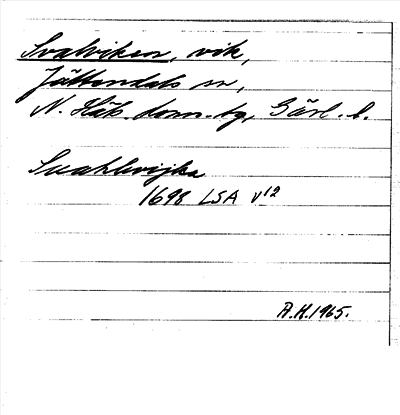 Svalviken, vik,
Jättendals sn,
N. Häls. dom. sg, Gävl. l.
Svahlwijka
1698 LSA V12
A.H. 1965.